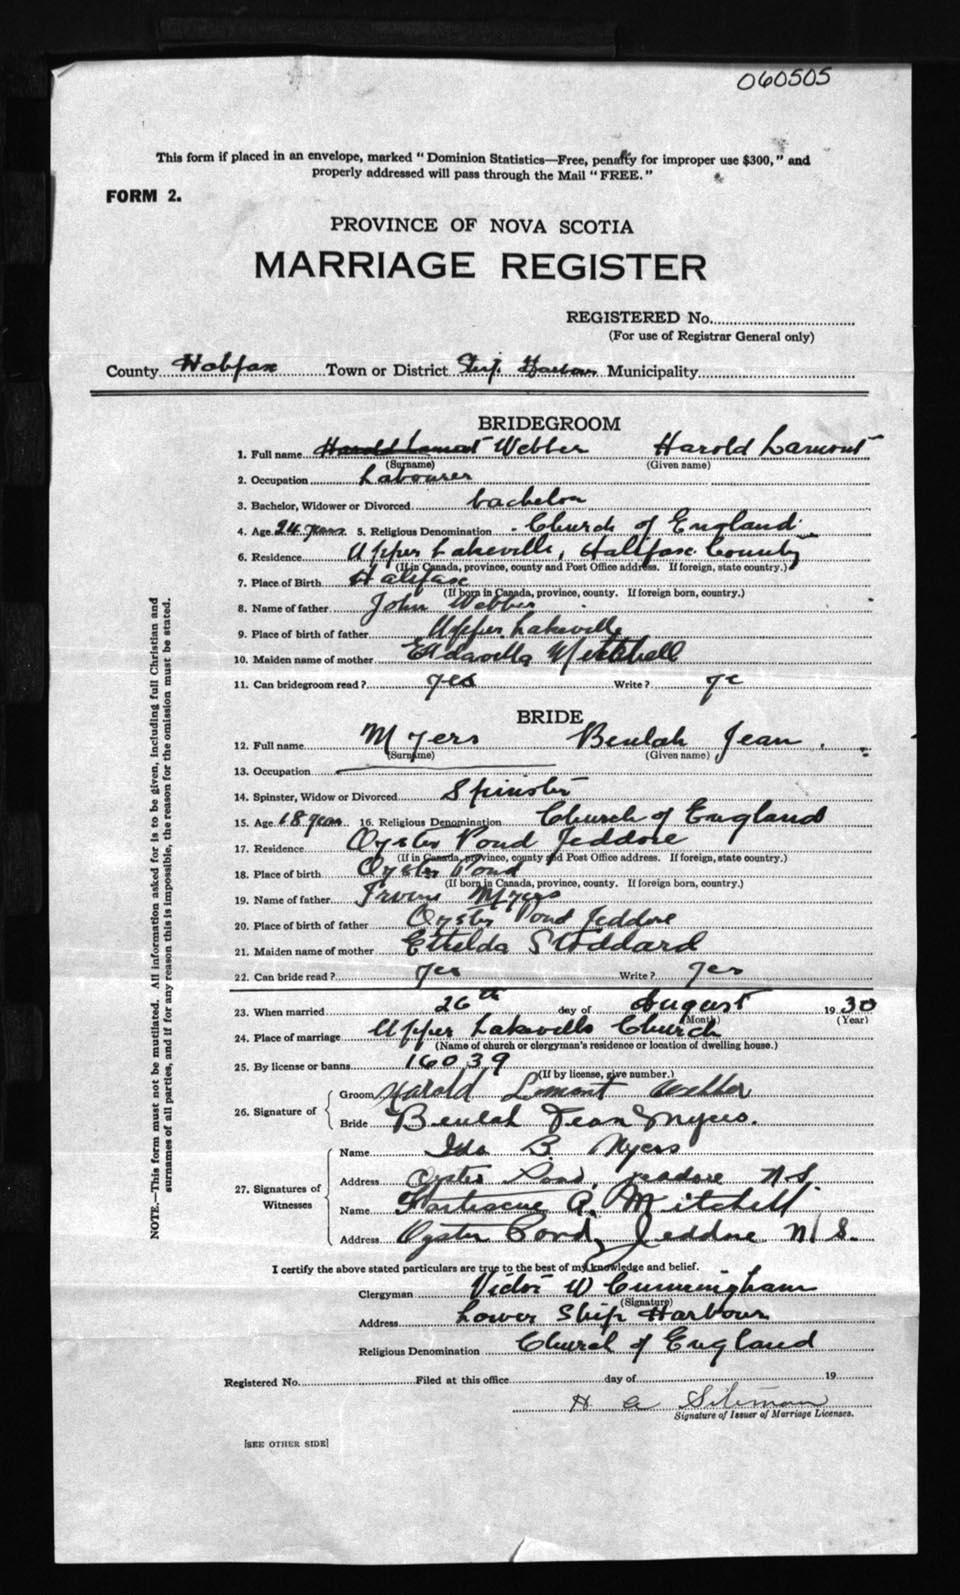 060505
This form if placed in an envelope, marked "Dominion Statistics—Free, penalty for improper use $300," and
properly addressed will pass through the Mail "FREE."
FORM 2.
PROVINCE OF NOVA SCOTIA
MARRIAGE REGISTER
REGISTERED No.
(For use of Registrar General only)
County Halifax Town or District Ship Harbour Municipality
BRIDEGROOM
1. Full name Harold Lamont Webber Harold Lamont
(Surname) (Given name)
2. Occupation Labourer
3. Bachelor, Widower or Divorced bachelor
4. Age 24 years 5. Religious Denomination Church of England
6. Residence Upper Lakeville, Halifax County
(If in Canada, province, county and Post Office address. If foreign, state country.)
7. Place of Birth Halifax
(If born in Canada, province, county. If foreign born, country.)
8. Name of father John Webber
9. Place of birth of father Upper Lakeville
10. Maiden name of mother Mitchell
11. Can bridegroom read? yes Write? ye
BRIDE
12. Full name Myers Beulah Jean
(Surname) (Given name)
13. Occupation
14. Spinster, Widow or Divorced Spinster
15. Age 18 years 16. Religious Denomination Church of England
17. Residence Oyster Pond Jeddore
(If in Canada, province, county and Post Office address. If foreign, state country.)
18. Place of birth Oyster Pond
(If born in Canada, province, county. If foreign born, country.)
19. Name of father Irvin Myers
20. Place of birth of father Oyster Pond Jeddore
21. Maiden name of mother Ethelda Stoddard
22. Can bride read? yes Write? yes
23. When married 26th day of August 1930
(Month) (Year)
24. Place of marriage Upper Lakeville Church
(Name of church or clergyman's residence or location of dwelling house.)
25. By license or banns 16039
(If by license, give number.)
26. Signature of
Groom Harold Lamont Webber
Bride Beulah Jean Myers.
27. Signatures of Witnesses
Name Ida B. Myers
Address Oyster Pond, Jeddore N.S.
Name Fortescue A. Mitchell
Address Oyster Pond, Jeddore N.S.
I certify the above stated particulars are true to the best of my knowledge and belief.
Clergyman Victor W Cunningham
(Signature)
Address Lower Ship Harbour
Religious Denomination Church of England
Registered No. Filed at this office day of 19
H A
Signature of Issuer of Marriage Licenses.
[SEE OTHER SIDE]
NOTE.—This form must not be mutilated. All information asked for is to be given, including full Christian and
surnames of all parties, and if for any reason this is impossible, the reason for the omission must be stated.